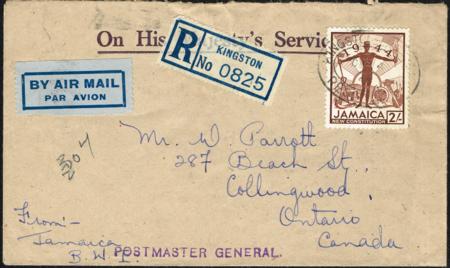 On His Majesty's Service
R KINGSTON
No 0825
BY AIR MAIL
PAR AVION
KINGSTON
1944
JAMAICA 2/-
NEW CONSTITUTION
Mr. W. Parrott
287 Beach St.,
Collingwood,
Ontario
Canada
From:-
Jamaica
B.W.I.
POSTMASTER GENERAL.